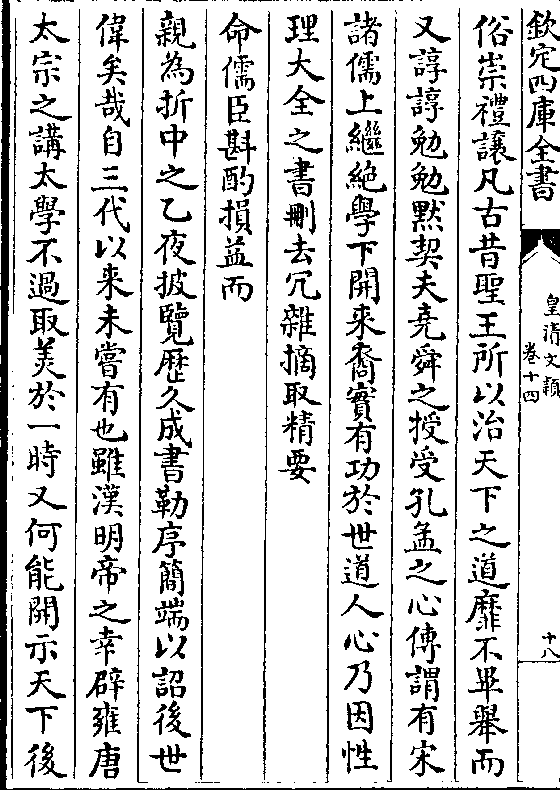 欽定四庫全書
皇清文穎
卷十四
十八
俗崇禮讓凡古昔聖王所以治天下之道靡不畢舉而
又諄諄勉勉默契夫堯舜之授受孔孟之心傳謂有宋
諸儒上繼絶學下開來裔實有功於世道人心乃因性
理大全之書刪去冗雜摘取精要
命儒臣斟酌損益而
親為折中之乙夜披覽歷久成書勒序簡端以詔後世
偉矣哉自三代以来未嘗有也雖漢明帝之幸辟雍唐
太宗之講太學不過取美於一時又何能開示天下後